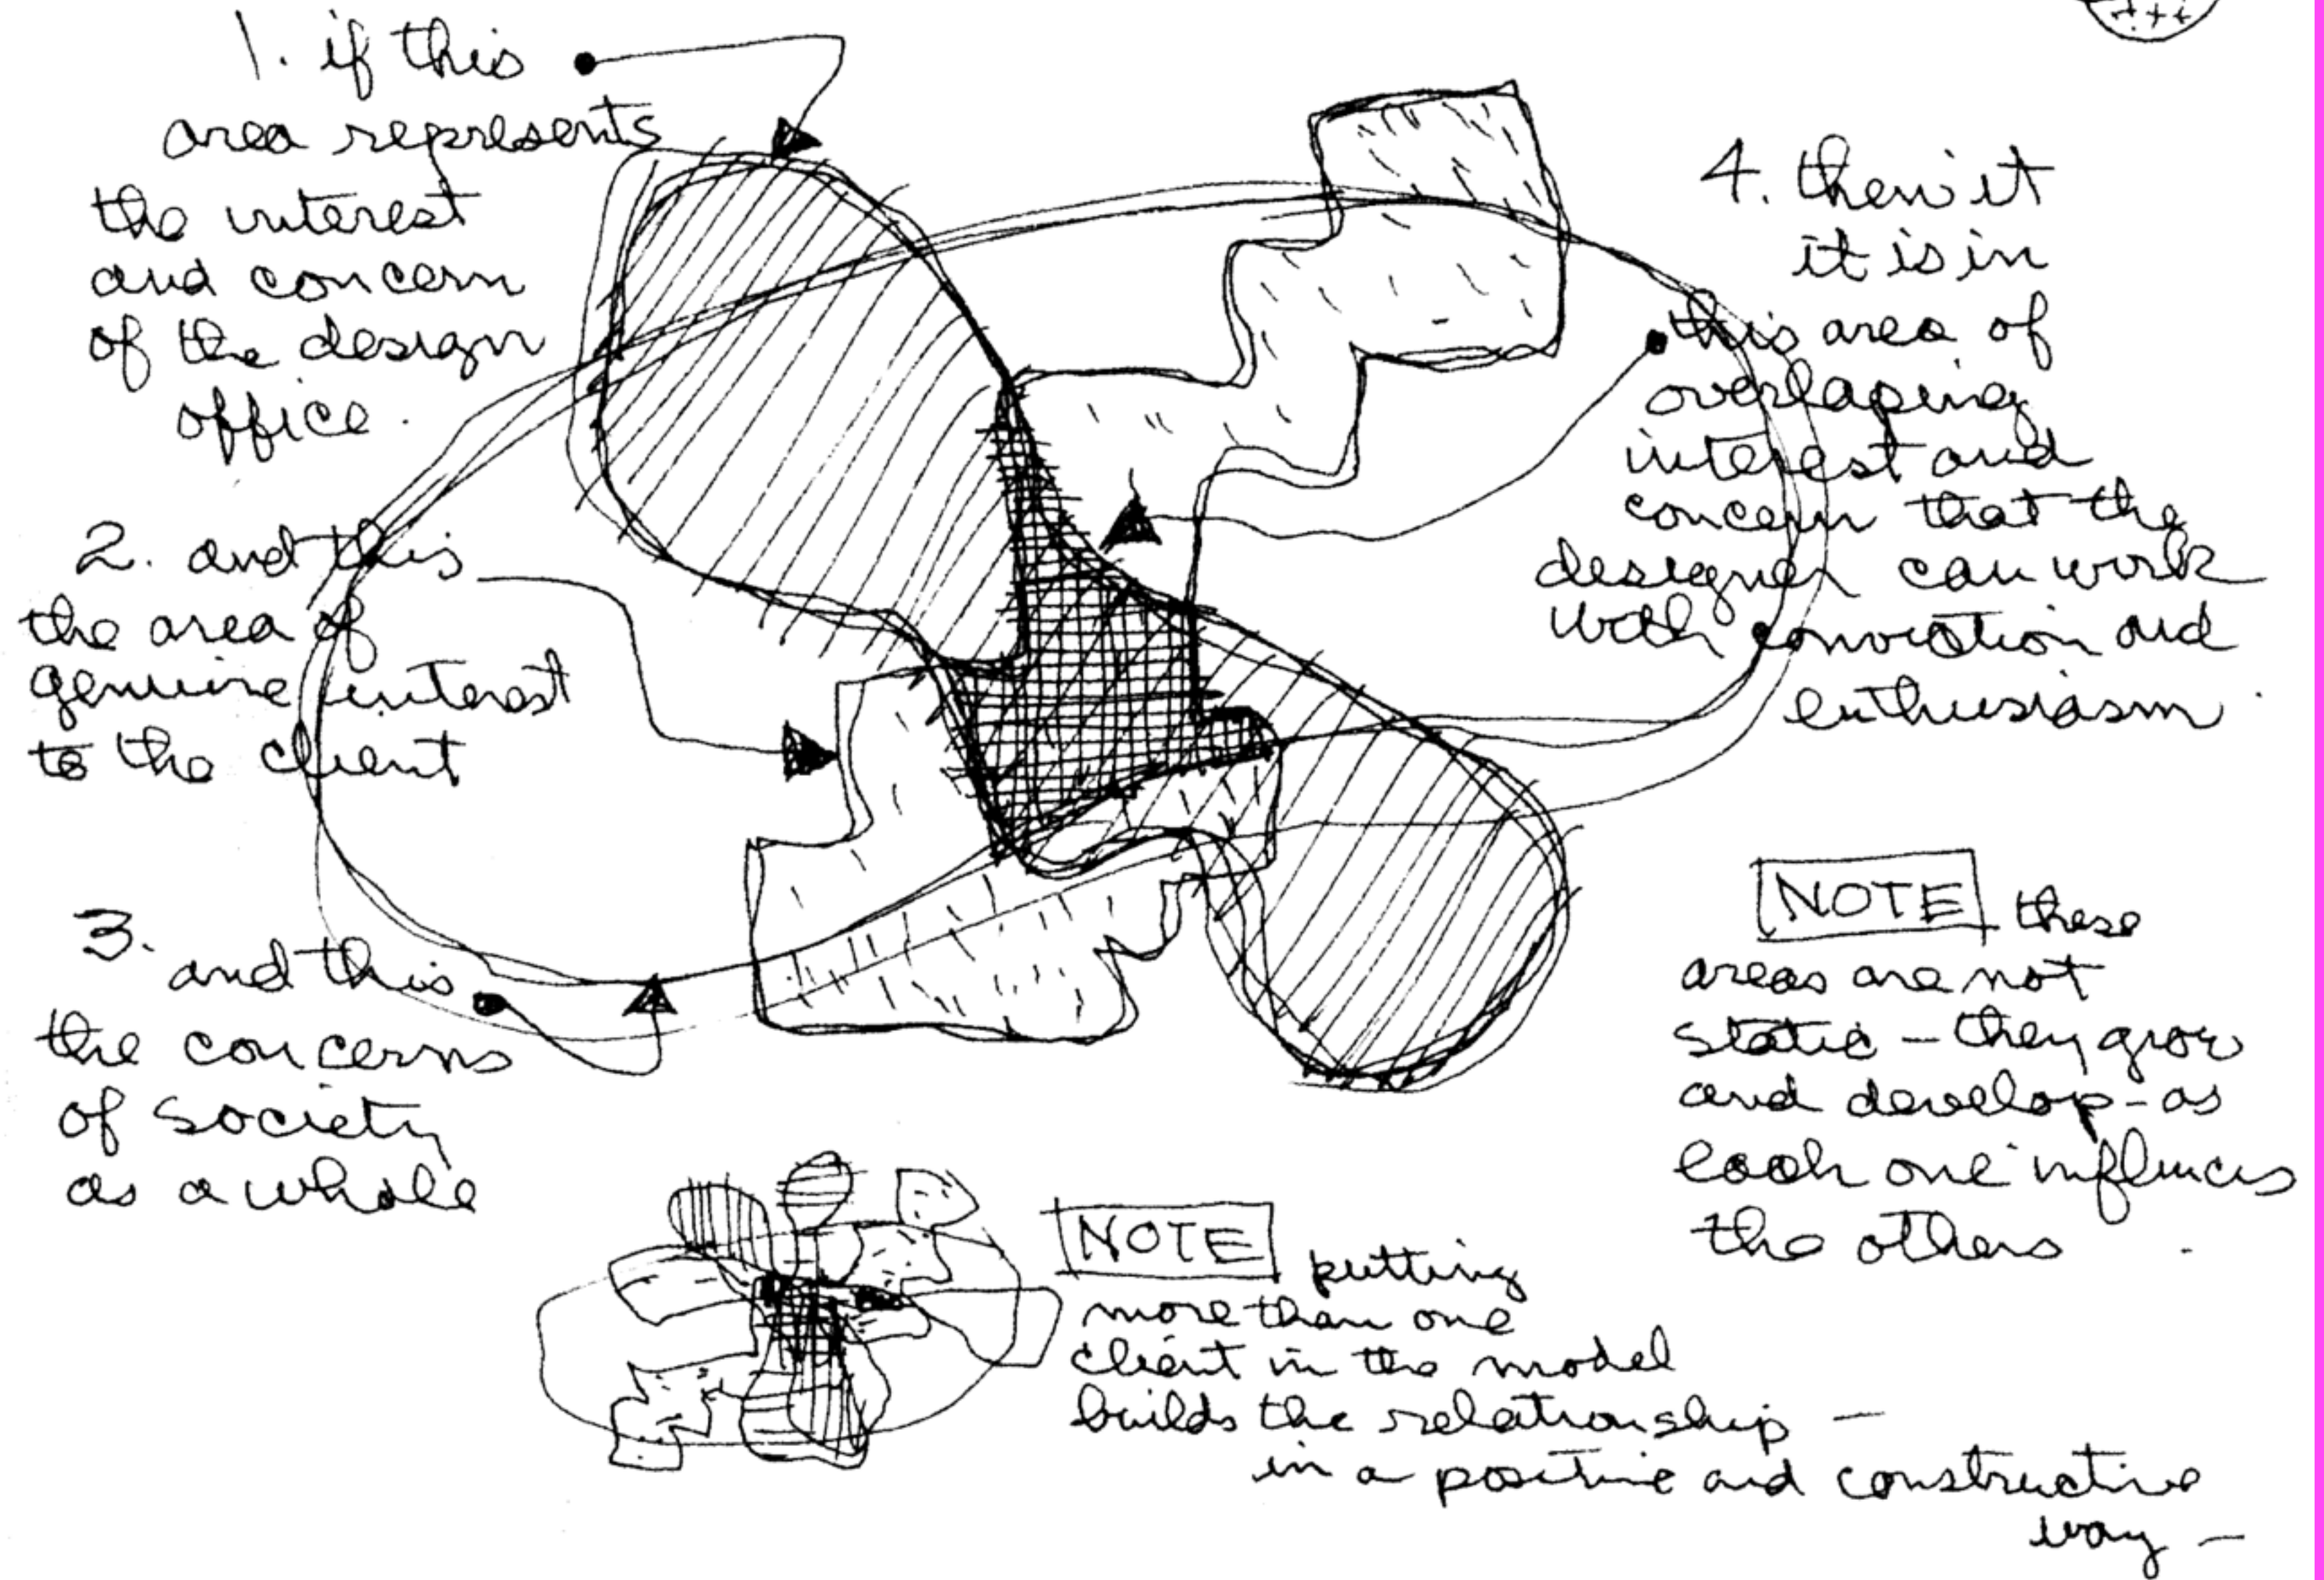 1. if this
area represents
the interest
and concern
of the design
office.
2. and this
the area of
genuine interest
to the client
3. and this
the concerns
of society
as a whole
4. then it
it is in
this area of
overlaping
interest and
concern that the
designer can work
with conviction and
enthusiasm
NOTE these
areas are not
static – they grow
and develop – as
each one influnces
the others
NOTE putting
more than one
client in the model
builds the relationship —
in a positive and constructive
way —